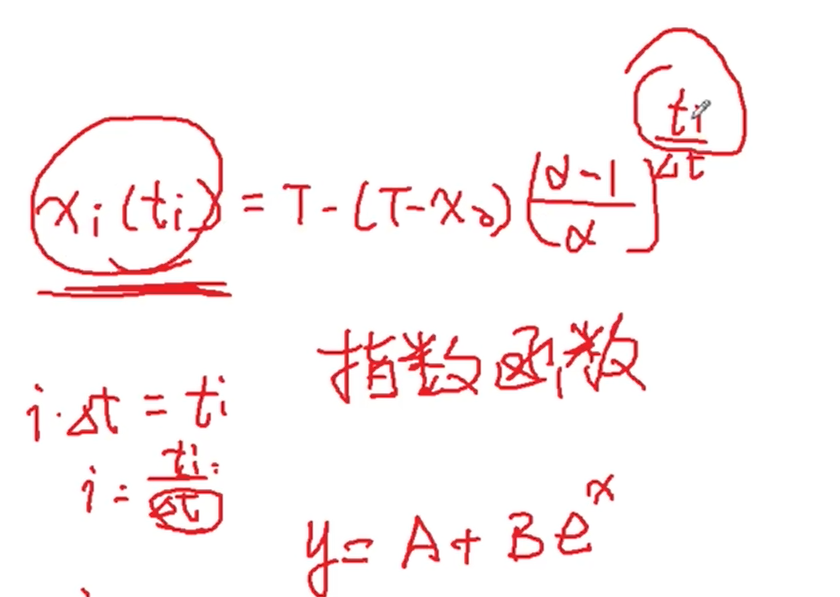 x_i(t_i) = T-(T-x_0)[(α-1)/α]^(t_i/Δt)
指数函数
i·Δt = t_i
i = t_i/Δt
y = A + Be^x